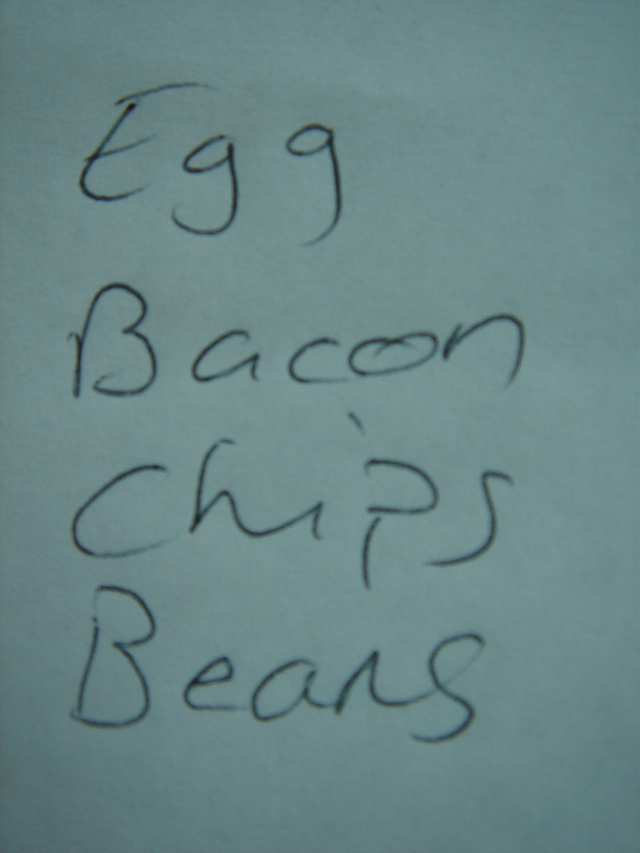 Egg
Bacon
Chips
Beans